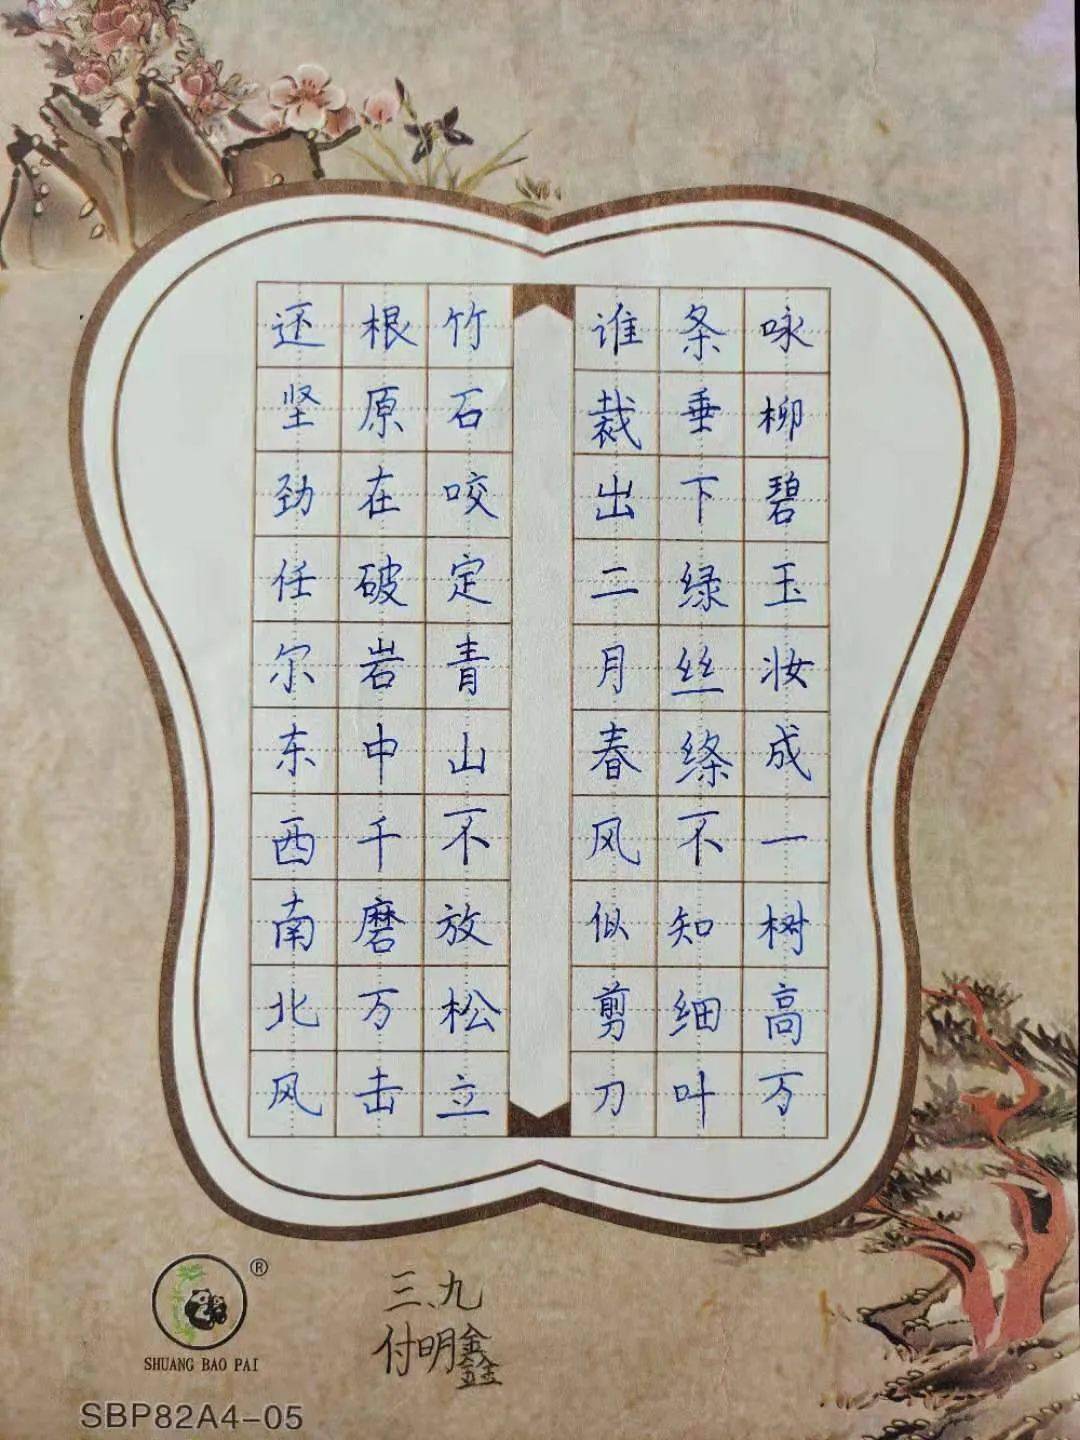 咏柳碧玉妆成一树高万
条垂下绿丝绦不知细叶
谁裁出二月春风似剪刀
竹石咬定青山不放松立
根原在破岩中千磨万击
还坚劲任尔东西南北风
三、九
付明鑫
®
SHUANG BAO PAI
SBP82A4-05